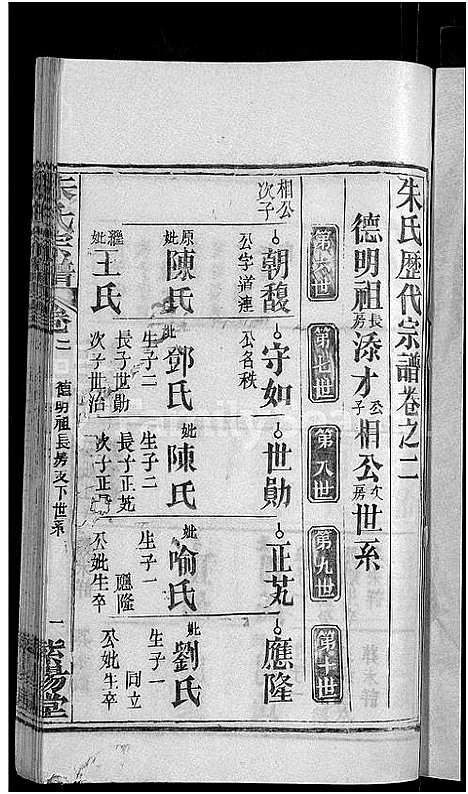 朱氏歷代宗譜卷之二
德明祖長房添才公子相公次房世系
第六世
第七世
第八世
第九世
第十世
相公次子
朝馥
公字道連
原妣陳氏
繼妣王氏
守如
公名秩
妣鄧氏
生子二
長子世勛
次子世治
世勛
妣陳氏
生子二
長子正芄
次子正
正芄
妣喻氏
生子一
應隆
公妣生卒
應隆
妣劉氏
生子一
同立
公妣生卒
朱氏宗譜
卷二
德明祖長房支下世系
一